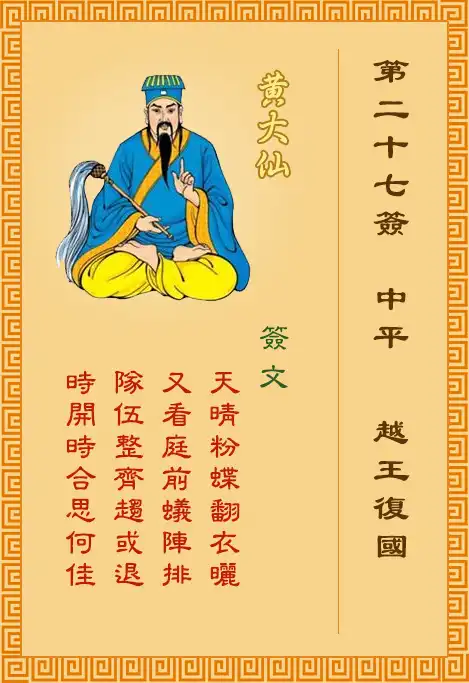 第二十七簽 中平 越王復國
黄大仙
簽文
天晴粉蝶翻衣曬
又看庭前蟻陣排
隊伍整齊趨或退
時開時合思何佳